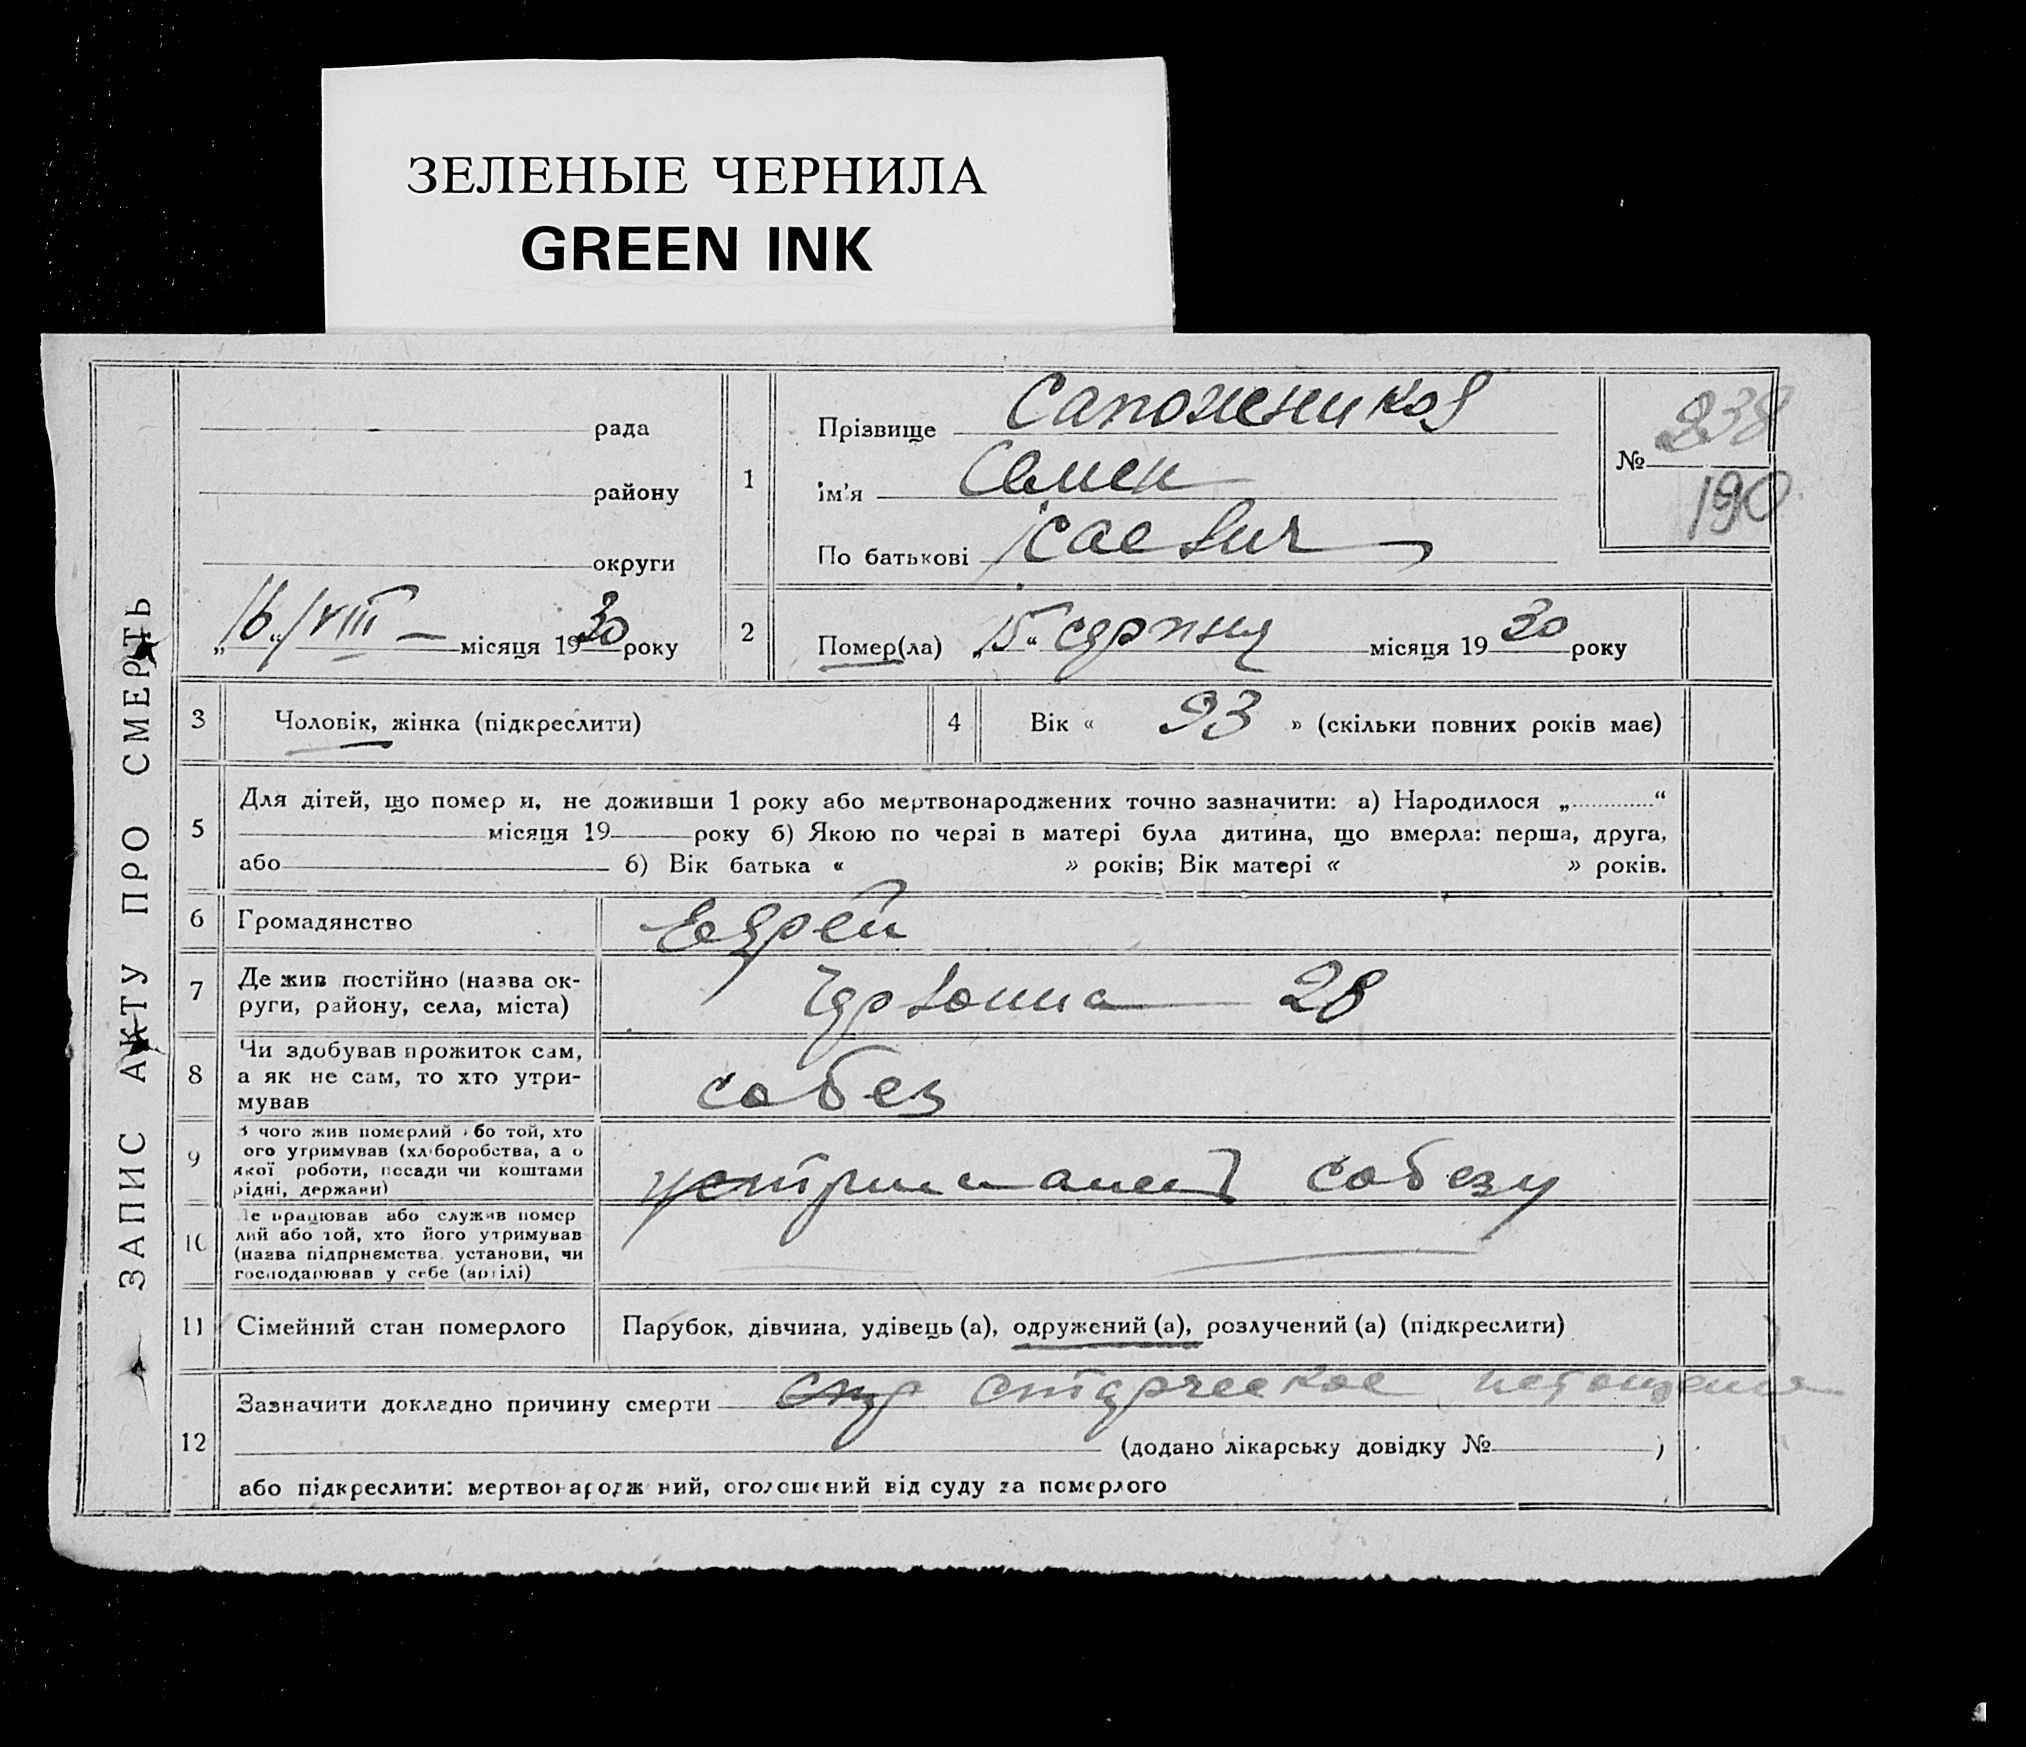 ЗЕЛЕНЫЕ ЧЕРНИЛА
GREEN INK
ЗАПИС АКТУ ПРО СМЕРТЬ
рада
району
округи
„16“/VIII — місяця 1930 року
1
Прізвище Сапожников
Ім'я Семен
По батькові Ісаевич
№ 838
190
2
Помер(ла) „15“ серпня місяця 1930 року
3
Чоловік, жінка (підкреслити)
4
Вік « 93 » (скільки повних років має)
5
Для дітей, що помер и, не доживши 1 року або мертвонароджених точно зазначити: а) Народилося „ “
місяця 19 року б) Якою по черзі в матері була дитина, що вмерла: перша, друга,
або б) Вік батька « » років; Вік матері « » років.
6
Громадянство Еврей
7
Де жив постійно (назва ок-
руги, району, села, міста)
28
8
Чи здобував прожиток сам,
а як не сам, то хто утри-
мував
собез
9
З чого жив померлий або той, хто
ого утримував (хліборобства, а о
якої роботи, посади чи коштами
рідні, держави)
собезу
10
Де працював або служив помер
лий або той, хто його утримував
(назва підприємства, установи, чи
господарював у себе (артілі)
11
Сімейний стан померлого
Парубок, дівчина, удівець (а), одружений (а), розлучений (а) (підкреслити)
12
Зазначити докладно причину смерти старческое
(додано лікарську довідку № )
або підкреслити: мертвонародж ний, оголошений від суду за померлого